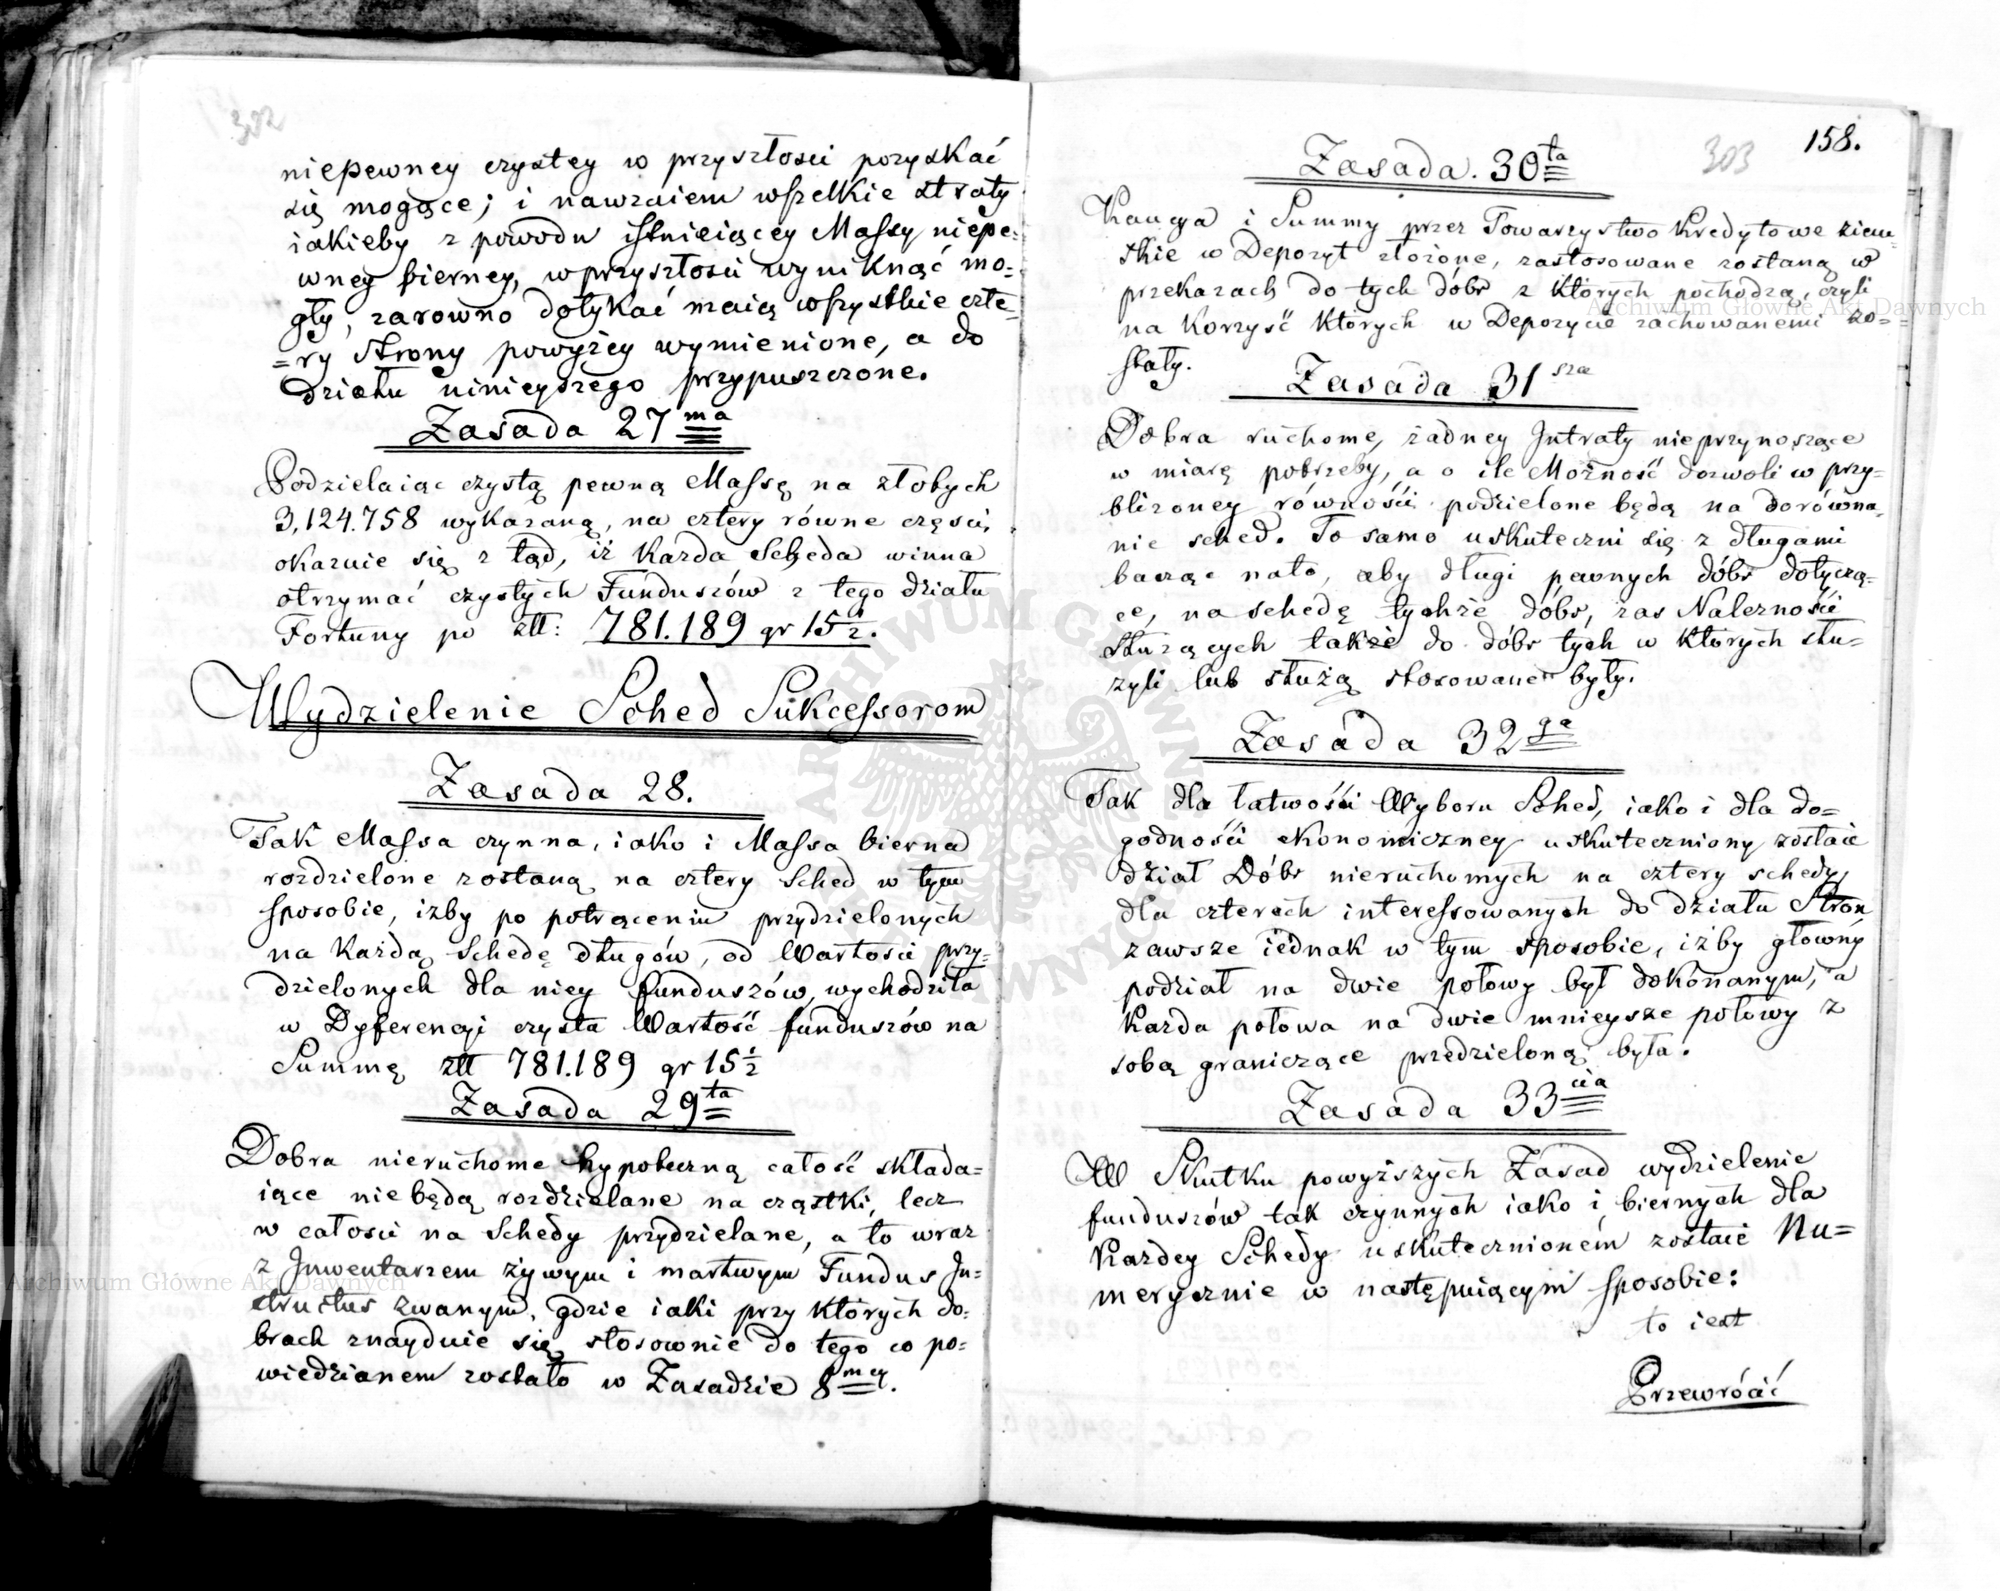 302
niepewney czystey w przyszłosci pozyskać
się mogące; i nawzaiem wszelkie straty
iakieby z powodu istnieiącey Massy niepe=
wney bierney, w przyszłosci wyniknąć mo=
gły, zarowno dotykać maią wszystkie czte=
=ry strony powyżey wymienione, a do
działu ninieyszego przypuszczone.
Zasada 27ma
Podzielaiąc czystą pewną Massę na złotych
3,124.758 wykazaną, na cztery równe części,
okazuie się z tąd, iż każda Scheda winna
otrzymać czystych Funduszów z tego działu
Fortuny po złł: 781.189 gr 15½.
Wydzielenie Sched Sukcessorom
Zasada 28.
Tak Massa czynna, iako i Massa bierna
rozdzielone zostaną na cztery Sched w tym
sposobie, iżby po potrąceniu przydzielonych
na każdą Schedę długów, od Wartosci przy=
dzielonych dla niey funduszów, wychodziła
w Dyferencyi czysta Wartość funduszów na
Summę złł 781.189 gr 15½
Zasada 29ta
Dobra nieruchome hypoteczną całość składa=
iące nie będą rozdzielane na cząstki, lecz
w całosci na Schedy przydzielane, a to wraz
z Inwentarzem żywym i martwym Fundus In=
structus zwanym, gdzie iaki przy których do=
brach znayduie się, stosownie do tego co po=
wiedzianem zostało w Zasadzie 8mey.
303
158.
Zasada. 30ta
Kaucya i Summy przez Towarzystwo Kredytowe ziem=
skie w Depozyt złożone, zastosowane zostaną w
przekazach do tych dóbr z których pochodzą, czyli
na korzyść których w Depozycie zachowanemi zo=
stały.
Zasada 31sza
Dobra ruchome, żadney Intraty nieprzynoszące
w miarę potrzeby, a o ile Możność dozwoli w przy=
bliżoney równości podzielone będą na dorówna=
nie sched. To samo uskuteczni się z długami
bacząc nato, aby długi pewnych dóbr dotyczą=
ce, na schedę tychże dóbr, zas Należności
służących także do dóbr tych w których słu=
żyli lub służą stosowane były.
Zasada 32ga
Tak dla łatwości Wyboru Sched, iako i dla do=
godności ekonomiczney uskuteczniony zostaie
dział Dóbr nieruchomych na cztery schedy
dla czterech interessowanych do działu Stron
zawsze iednak w tym sposobie, iżby główny
podział na dwie połowy był dokonanym, a
każda połowa na dwie mnieysze połowy z
sobą graniczące przedzieloną była.
Zasada 33cia
W Skutku powyższych Zasad wydzielenie
funduszów tak czynnych iako i biernych dla
każdey Schedy uskutecznionem zostaie Nu=
merycznie w następuiącym sposobie:
to iest
Przewrócić
Archiwum Główne Akt Dawnych
Archiwum Główne Akt Dawnych
ARCHIWUM GŁÓWNE AKT DAWNYCH